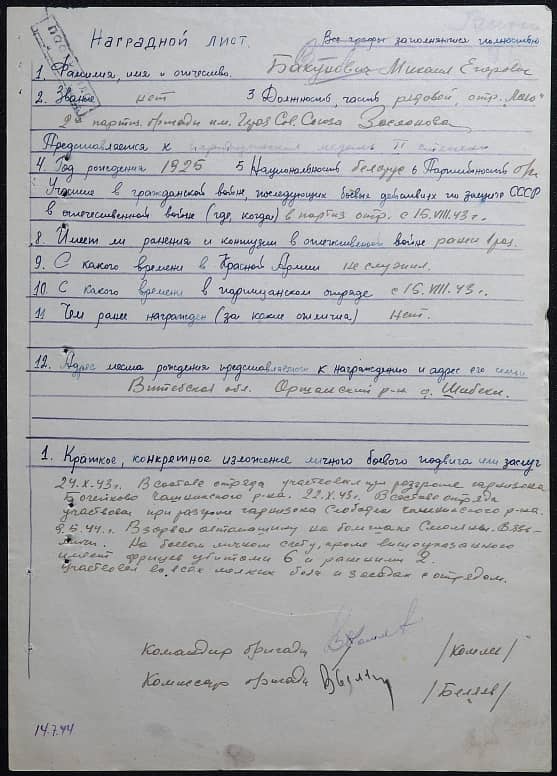 Наградной лист.
Все графы заполняются полностью
1. Фамилия, имя и отчество. Бакунович Михаил Егорович
2. Звание нет 3 Должность, часть рядовой, отр.
2й партиз. бригады им. Героя Сов. Союза Заслонова
Представляется к партизанской медали II степени
4. Год рождения 1925 5 Национальность беларус 6 Партийность
Участие в гражданской войне, последующих боевых действиях по защите СССР
в отечественной войне (где, когда) в партиз отр. с 15.VIII.43 г.
8. Имеет ли ранения и контузии в отечественной войне ранен 1 раз.
9. С какого времени в Красной Армии не служил.
10. С какого времени в партизанском отряде с 15.VIII.43 г.
11 Чем ранее награжден (за какие отличия) Нет.
12. Адрес места рождения представляемого к награждению и адрес его семьи
Витебская обл. Оршанский р-н д. Шибеки.
1. Краткое, конкретное изложение личного боевого подвига или заслуг
24.X.43г. В составе отряда участвовал при разгроме гарнизона
Бочейково Чашникского р-на. 22.X.43г. В составе отряда
участвовал при разгроме гарнизона Слободка Чашникского р-на.
9.5.44г. Взорвал автомашину на большаке Смоляны.
На боевом личном счету, кроме вышеуказанного
имеет фрицев убитыми 6 и ранеными 2.
участвовал во всех мелких боях и засадах с отрядом.
Командир бригады /Комлев/
Комиссар бригады /Беляев/
14.7.44